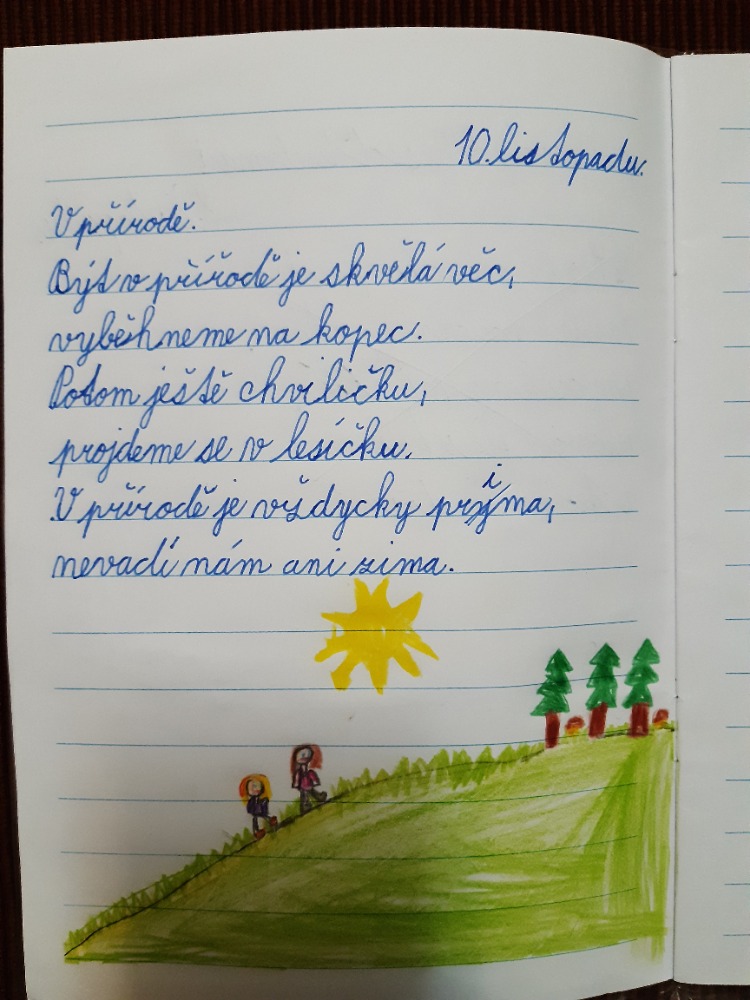 10. listopadu.
V přírodě.
Být v přírodě je skvělá věc,
vyběhneme na kopec.
Potom ještě chviličku,
projdeme se v lesíčku.
V přírodě je vždycky prima,
nevadí nám ani zima.